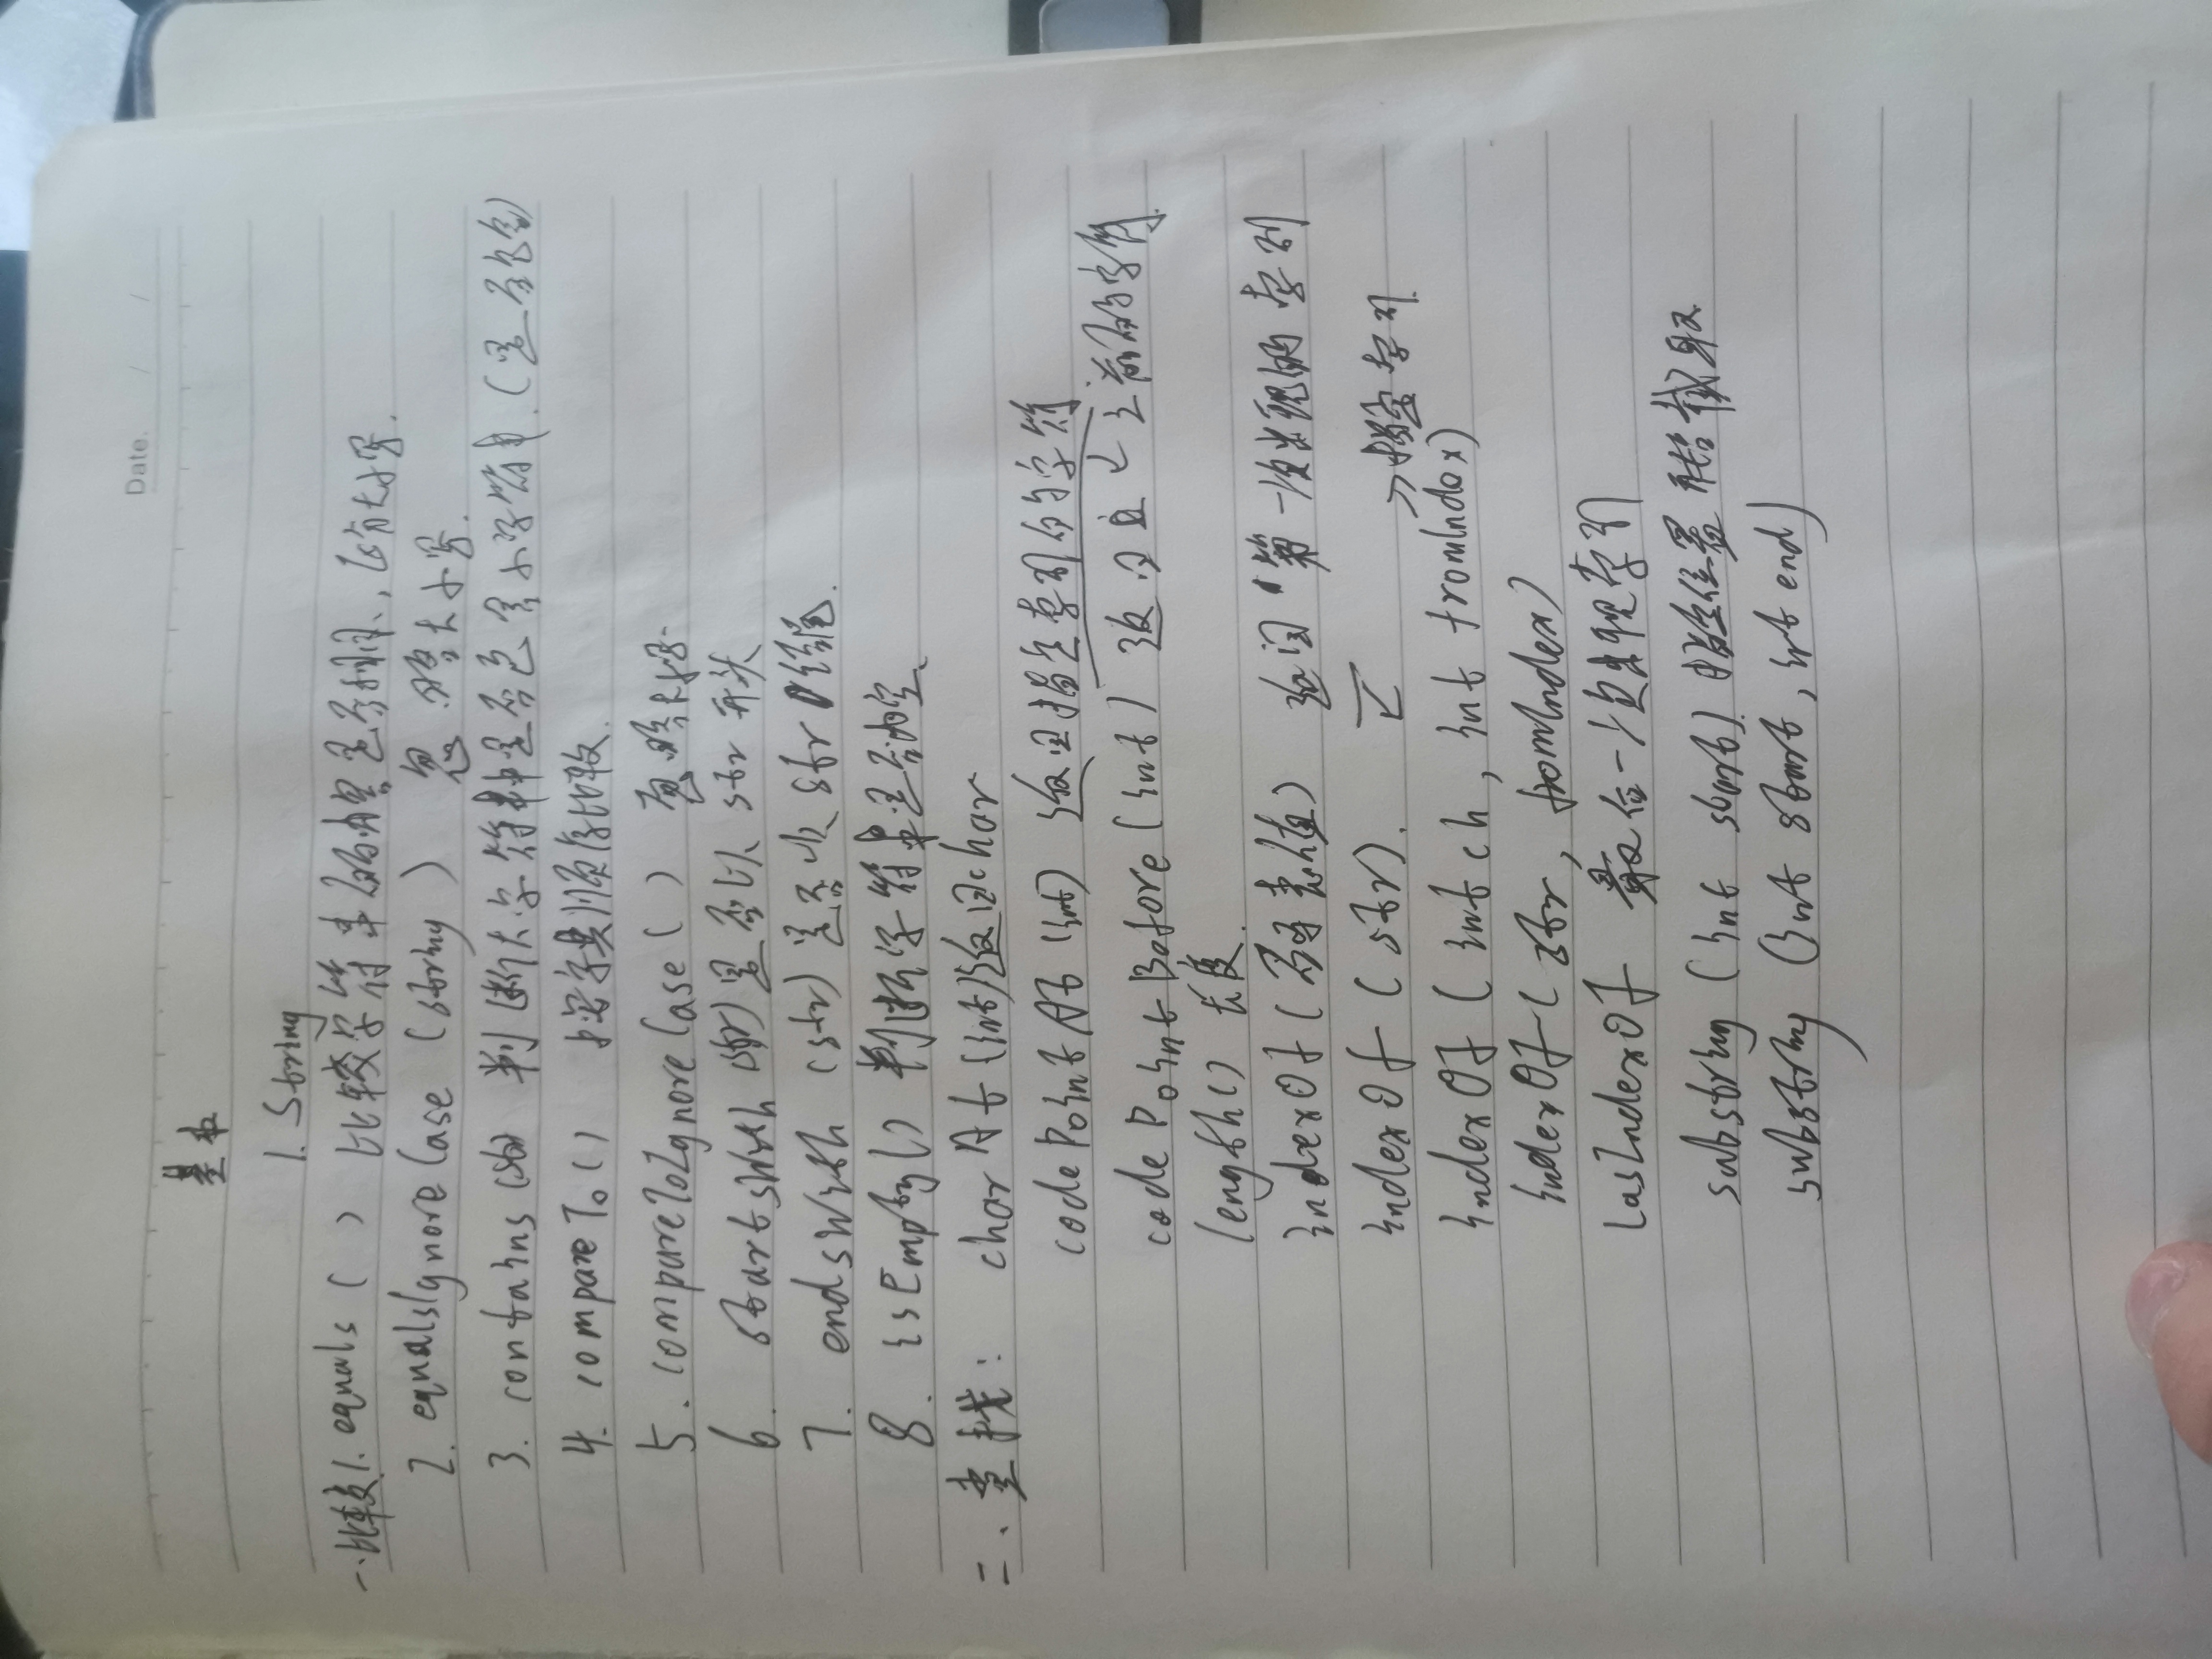 Date. / /
基本
1. String
一.比较1. equals ( ) 比较字符串的内容是否相同、,区分大小写.
2. equalsIgnoreCase (string) 忽略大小写.
3. contains (str) 判断大字符串中是否包含小字符串.(是否包含)
4. compareTo() 按字典顺序比较.
5. compareToIgnoreCase ( ) 忽略大小写.
6. startsWith (str) 是否以 str 开头
7. endsWith (str) 是否以 str 结尾.
8. isEmpty() 判断字符串是否为空、
二、查找: charAt (int)返回char
codePointAt (int) 返回指定索引的字符
codePointBefore (int) 返回且 ↙ 之前的字符
length() 长度.
indexOf ( 值) 返回 第一次出现的索引
indexOf (str). ↙ >>指定索引.
indexOf ( int ch, int fromIndex)
indexOf ( str, fromIndex)
lasIndexOf 最后一次出现索引
substring (int start). 指定位置开始截取.
substring (int start, int end)